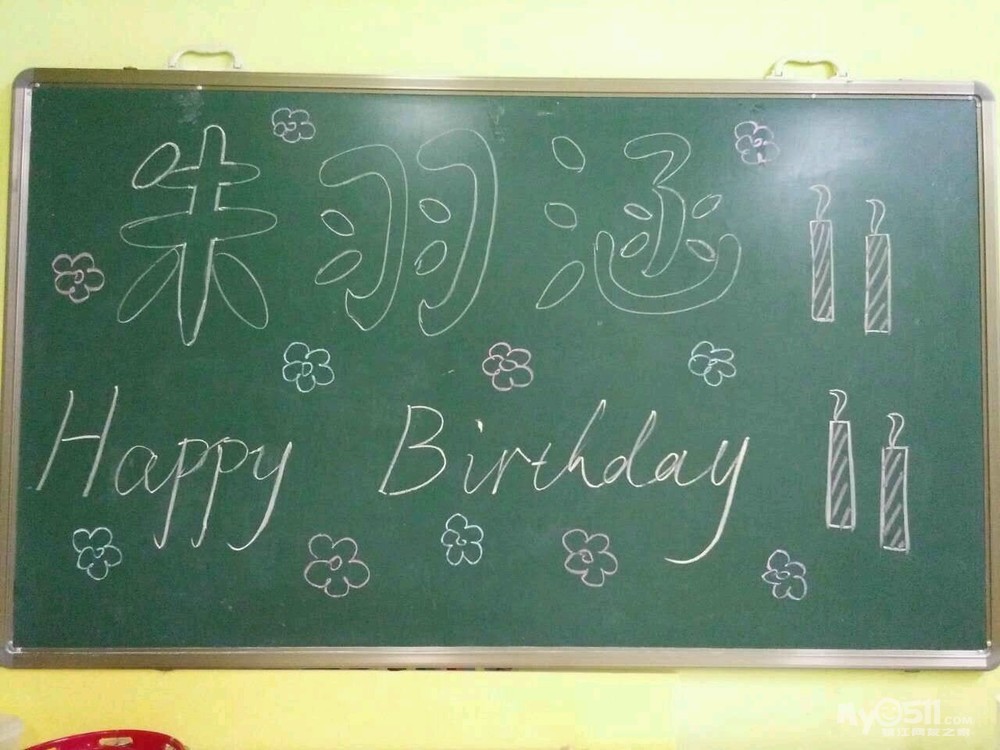 朱羽涵
Happy Birthday
My0511.COM